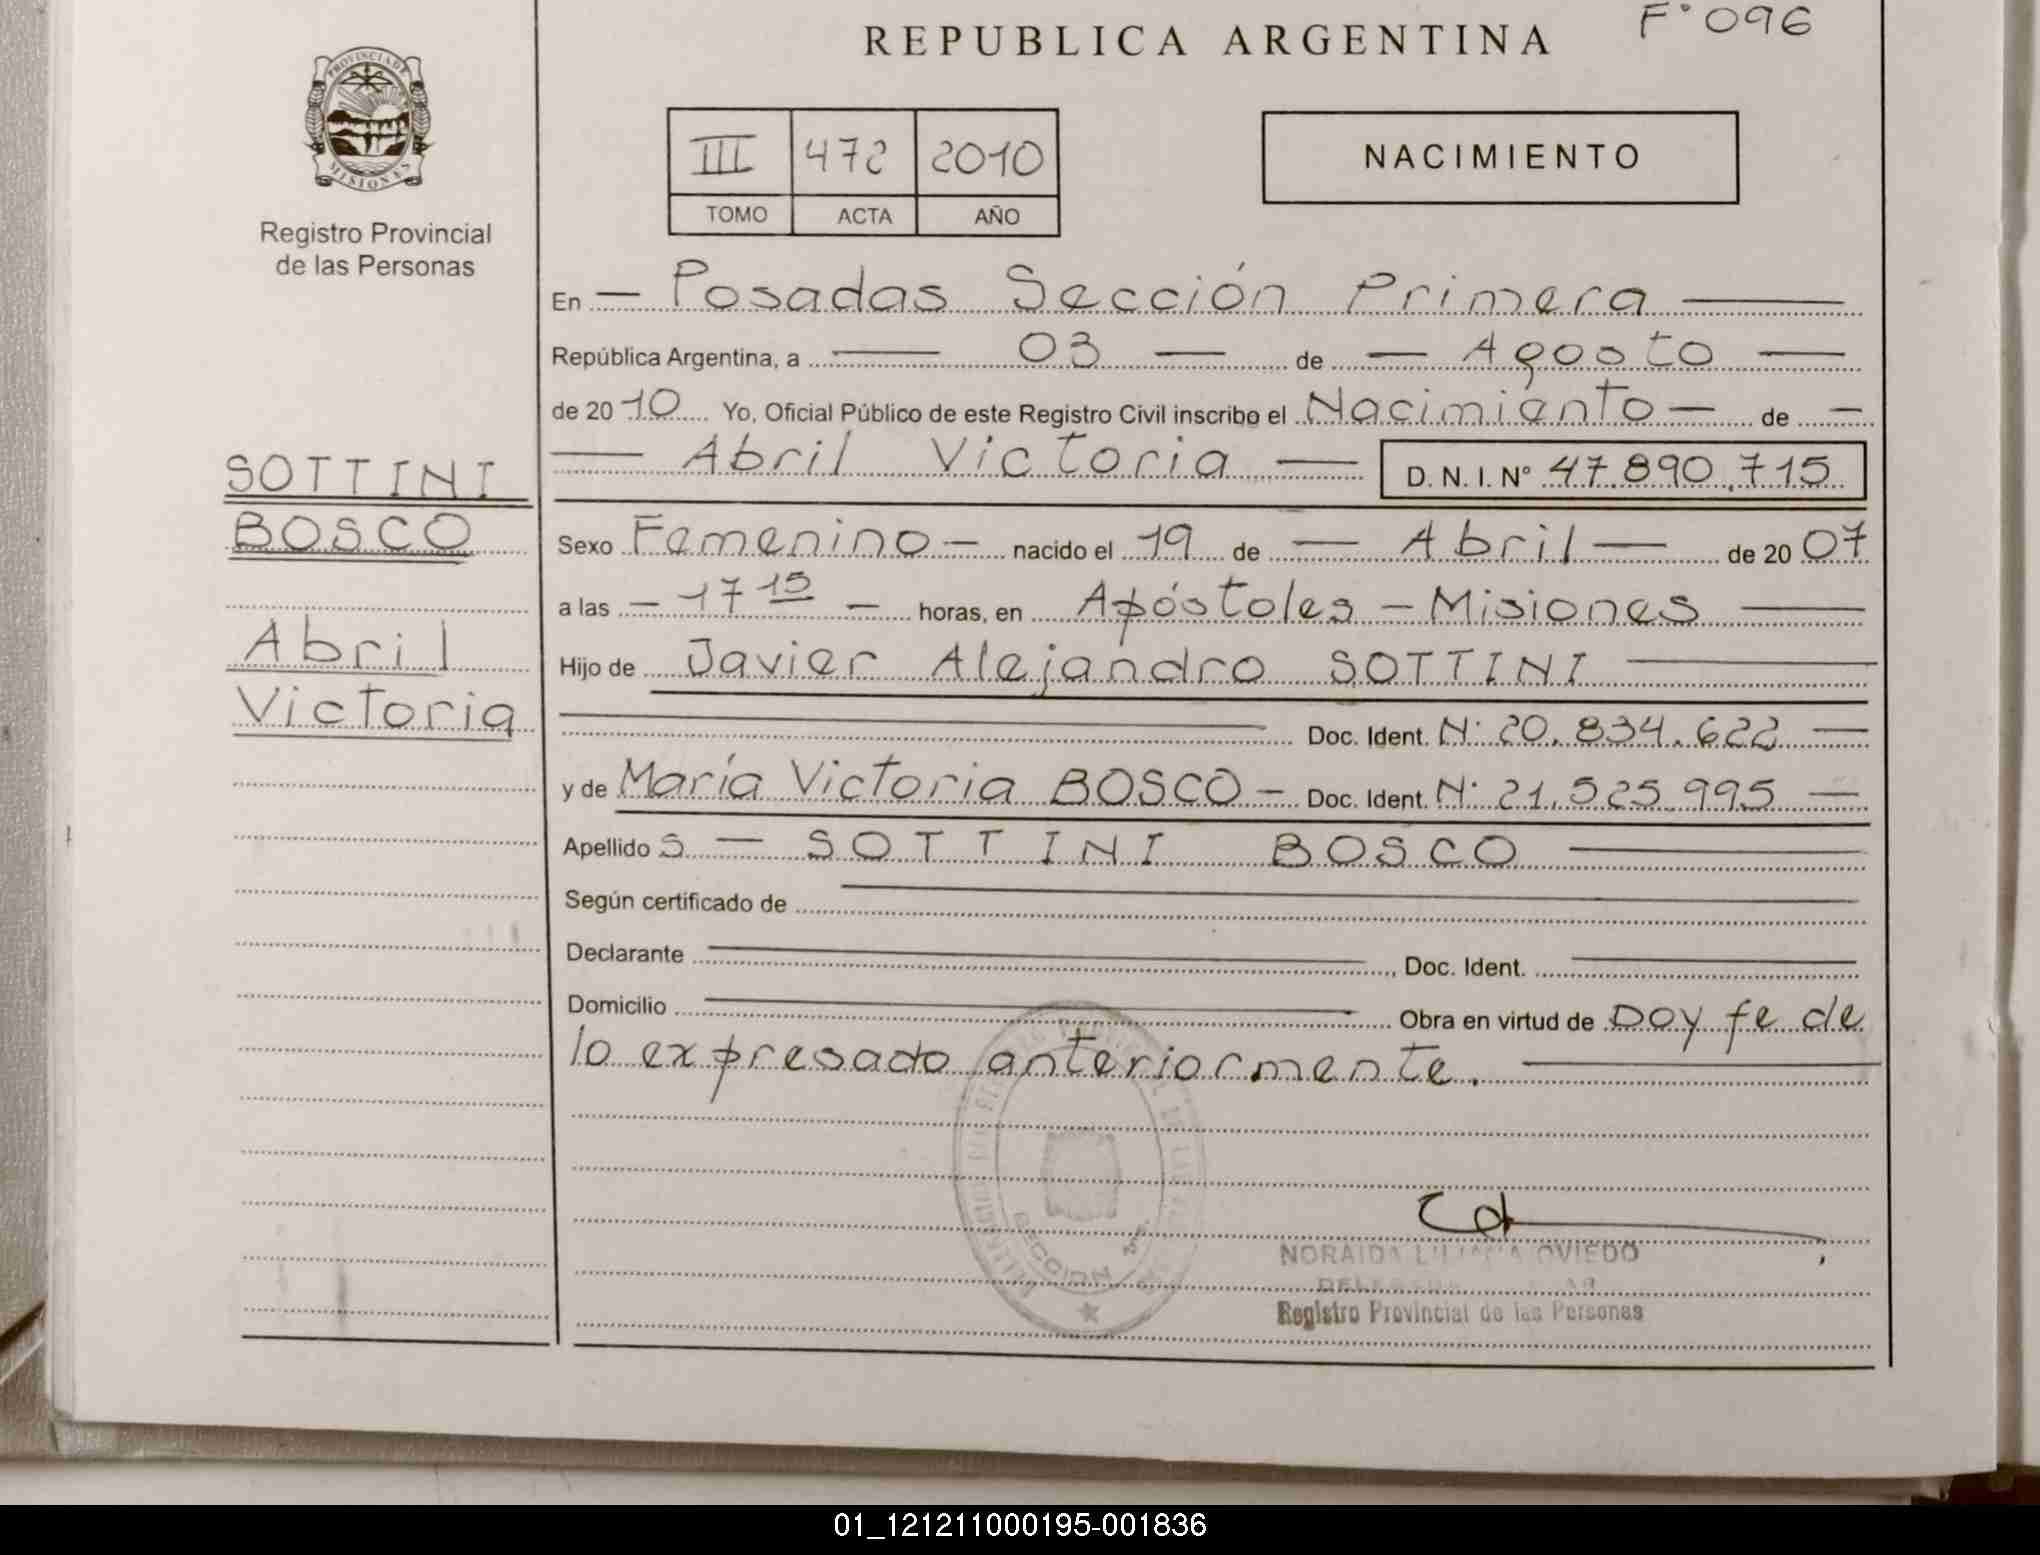 F° 096
REPUBLICA ARGENTINA
PROVINCIA DE
MISIONES
Registro Provincial
de las Personas
III 472 2010
TOMO ACTA AÑO
NACIMIENTO
En — Posadas Sección Primera —
República Argentina, a — 03 — de — Agosto —
de 20 10 Yo, Oficial Público de este Registro Civil inscribo el Nacimiento — de —
— Abril Victoria — D. N. I. N° 47.890.715
SOTTINI
BOSCO
Abril
Victoria
Sexo Femenino — nacido el 19 de — Abril — de 20 07
a las — 17 15 — horas, en Apóstoles — Misiones —
Hijo de Javier Alejandro SOTTINI —
Doc. Ident. N° 20.834.622 —
y de María Victoria BOSCO — Doc. Ident. N° 21.525.995 —
Apellido s — SOTTINI BOSCO —
Según certificado de —
Declarante — Doc. Ident. —
Domicilio — Obra en virtud de Doy fe de
lo expresado anteriormente. —
SECCION
NORAIDA LILIANA OVIEDO
Registro Provincial de las Personas
01_121211000195-001836